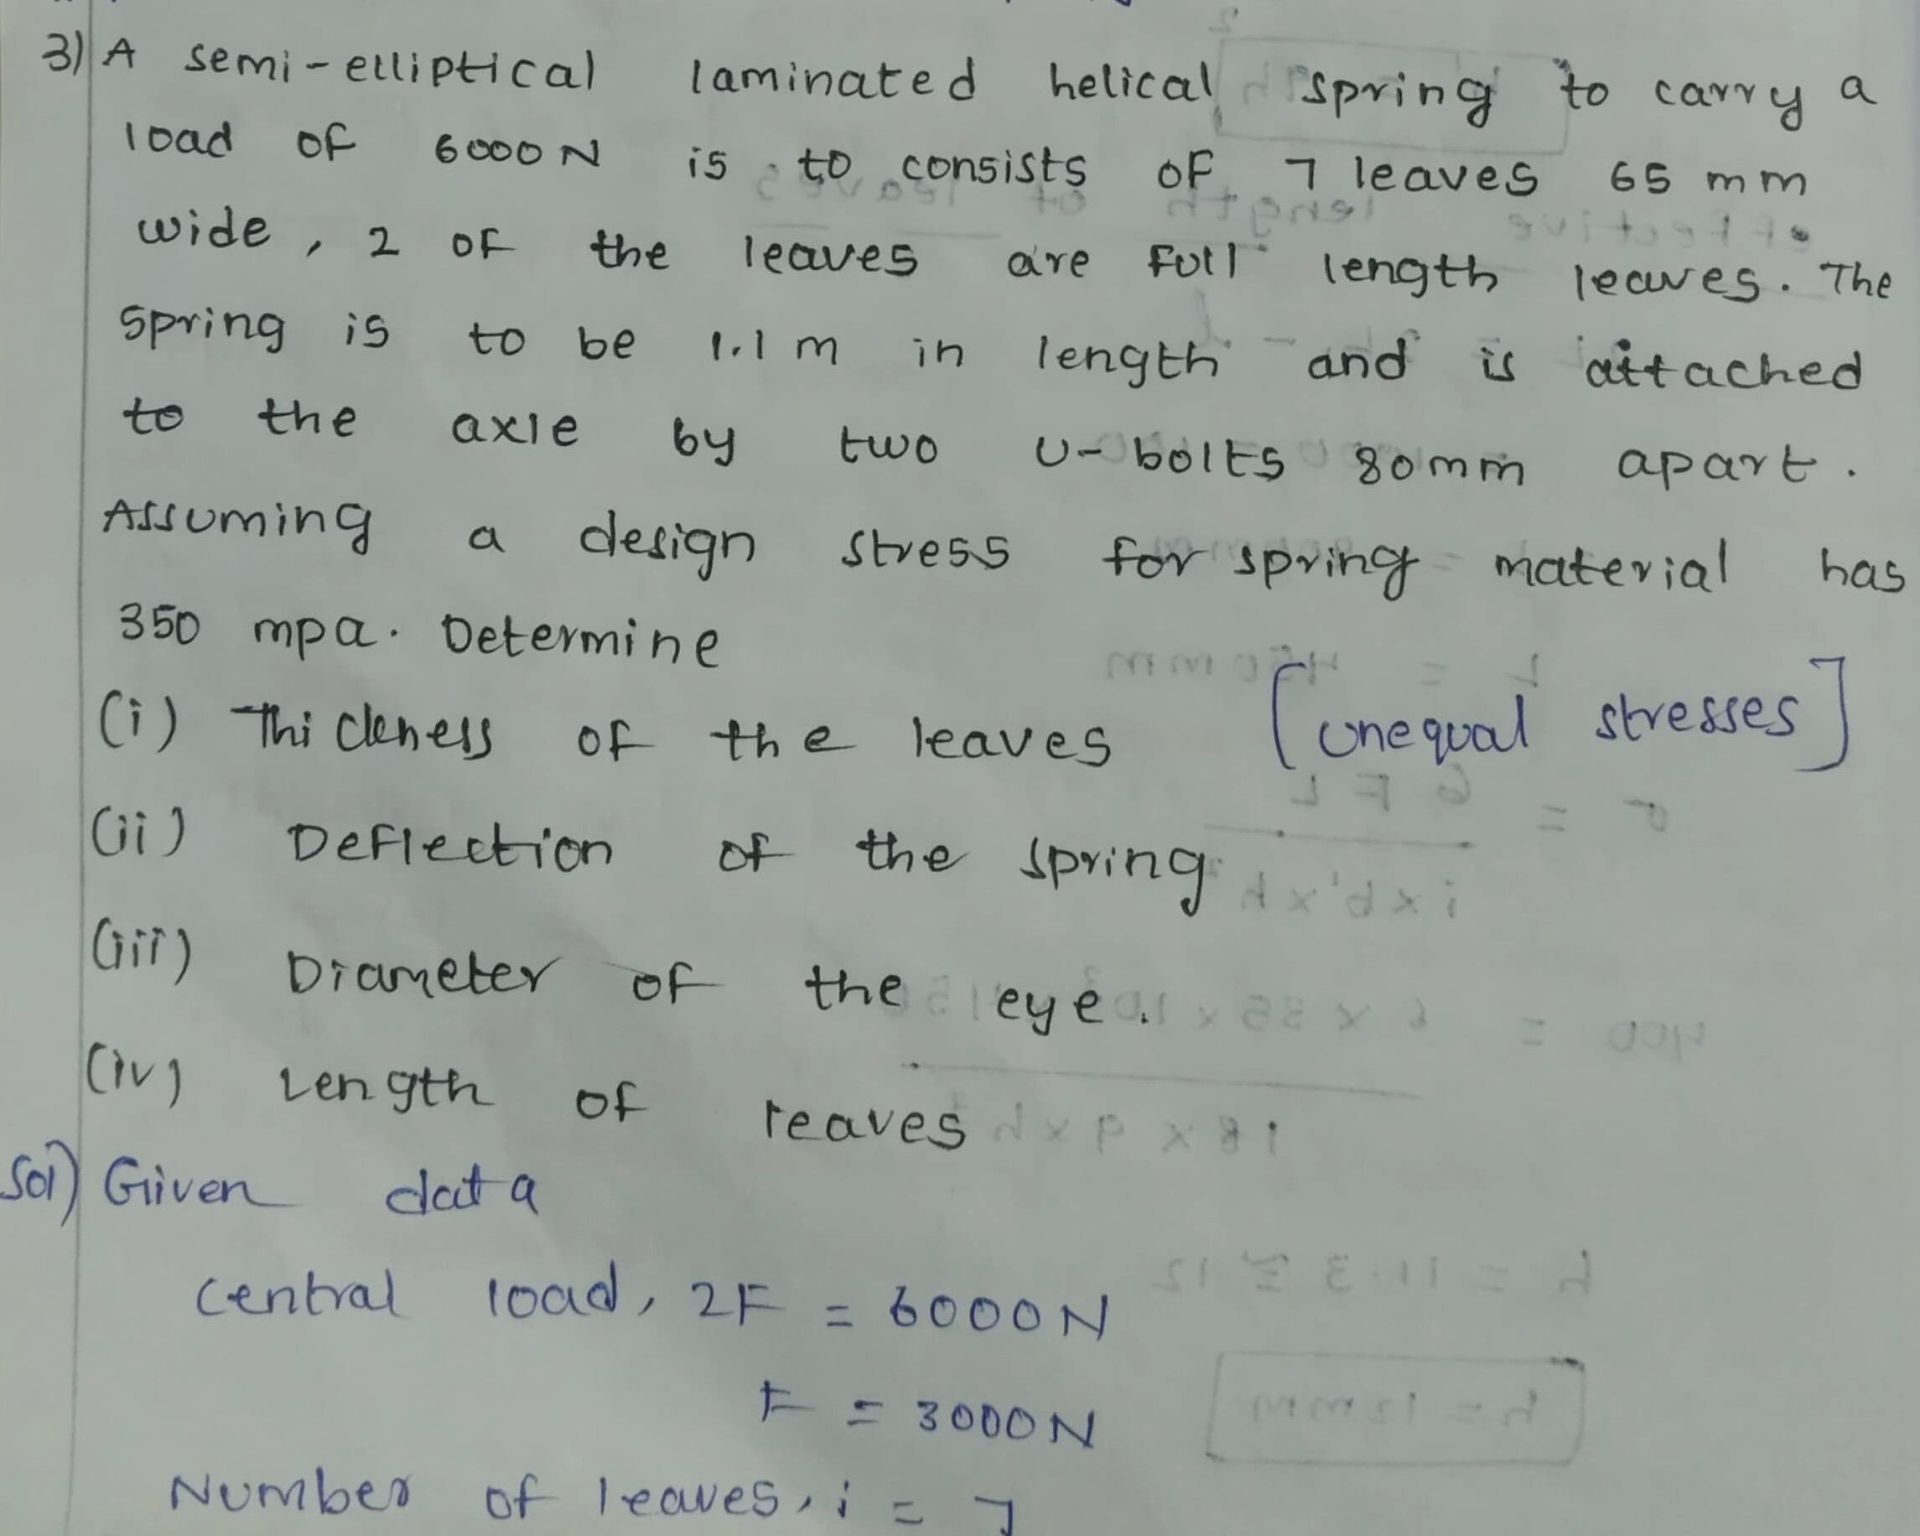 3) A semi-elliptical laminated helical spring to carry a
load of 6000N is to consists of 7 leaves 65 mm
wide, 2 of the leaves are full length leaves. The
spring is to be 1.1m in length and is attached
to the axle by two U-bolts 80mm apart.
Assuming a design stress for spring material has
350 mpa. Determine
(i) Thickness of the leaves [unequal stresses]
(ii) Deflection of the spring
(iii) Diameter of the eye.
(iv) Length of leaves
Sol) Given data
central load, 2F = 6000N
F = 3000N
Number of leaves, i = 7